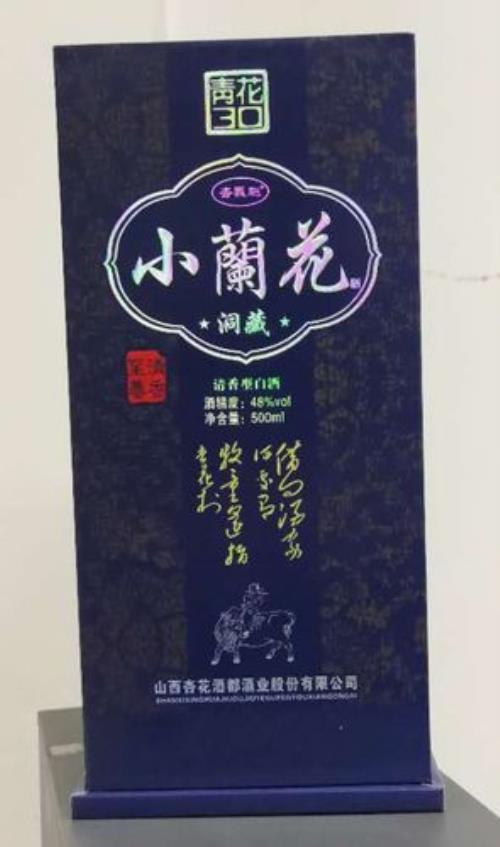 青花
30
杏義和
小蘭花
洞藏
清香
至尊
清香型白酒
酒精度：48%vol
净含量：500ml
借问酒家
何处有
牧童遥指
杏花村
山西杏花酒都酒业股份有限公司